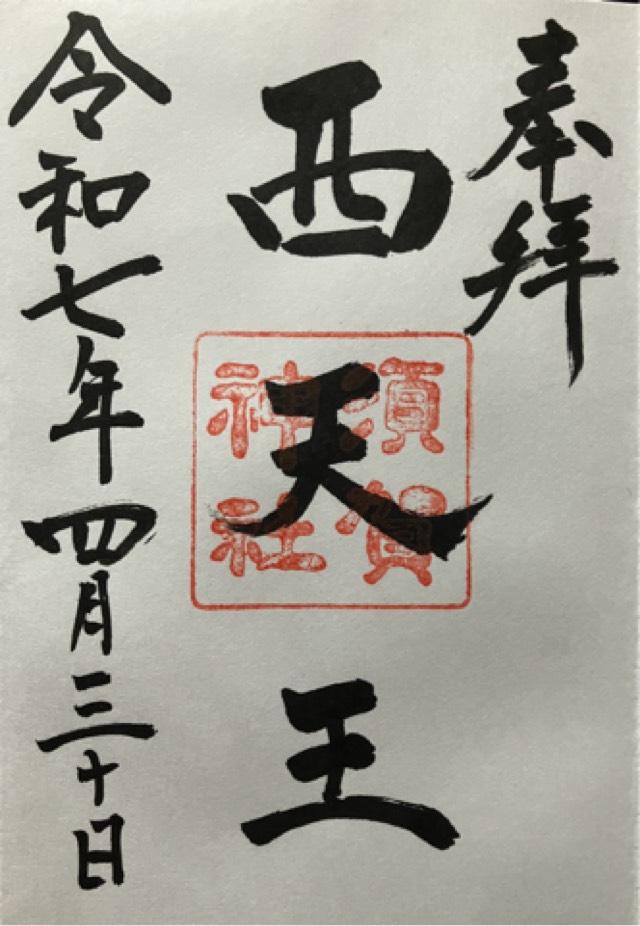 奉拜
西天王
須賀
神社
令和七年四月三十日